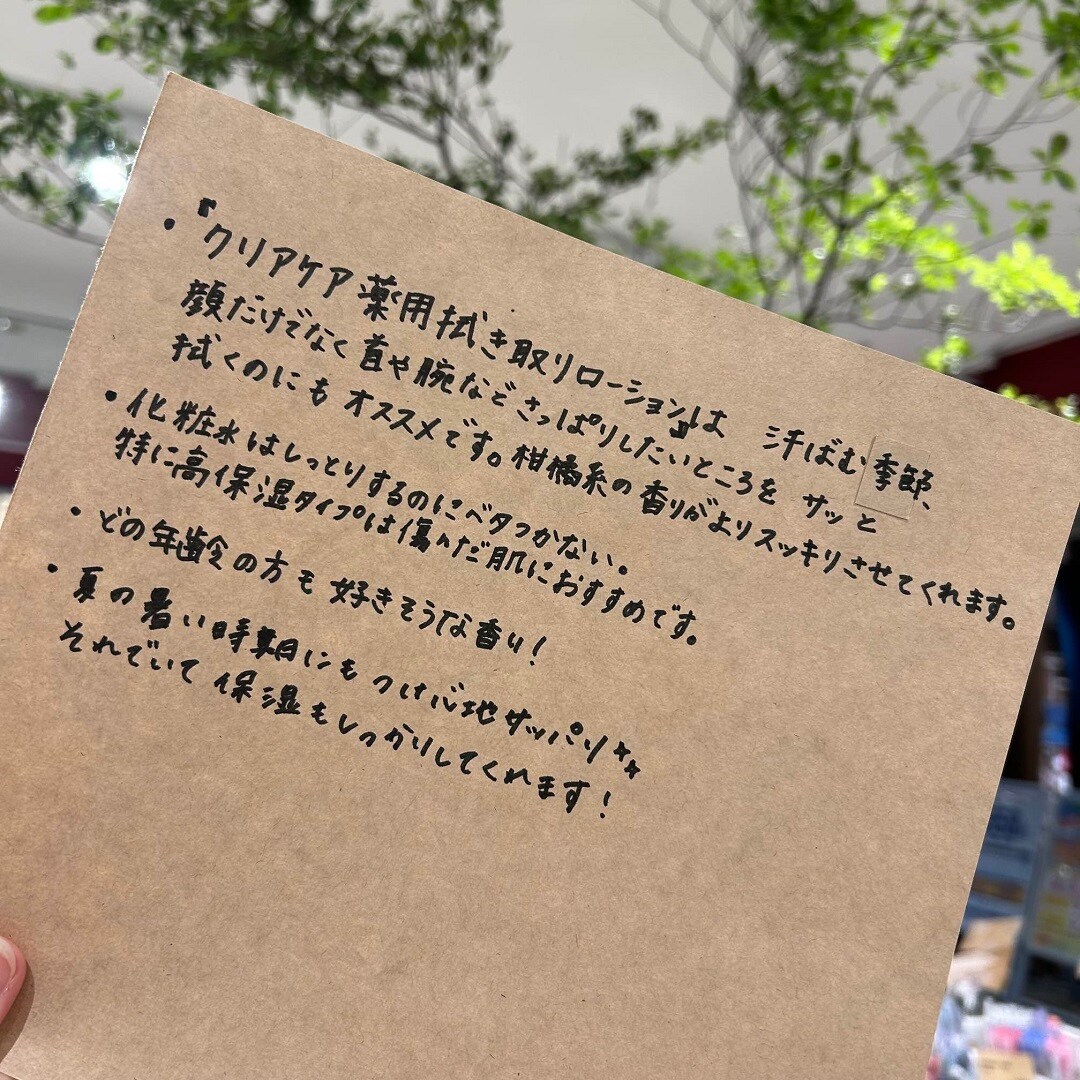 ・『クリアケア薬用拭き取りローション』は 汗ばむ季節、
顔だけでなく首や腕などさっぱりしたいところを サッと
拭くのにもオススメです。柑橘系の香りがよりスッキリさせてくれます。
・化粧水はしっとりするのにベタつかない。
特に高保湿タイプは傷んだ肌におすすめです。
・どの年齢の方も好きそうな香り!
・夏の暑い時期にもつけ心地サッパリ☆☆
それでいて保湿もしっかりしてくれます!